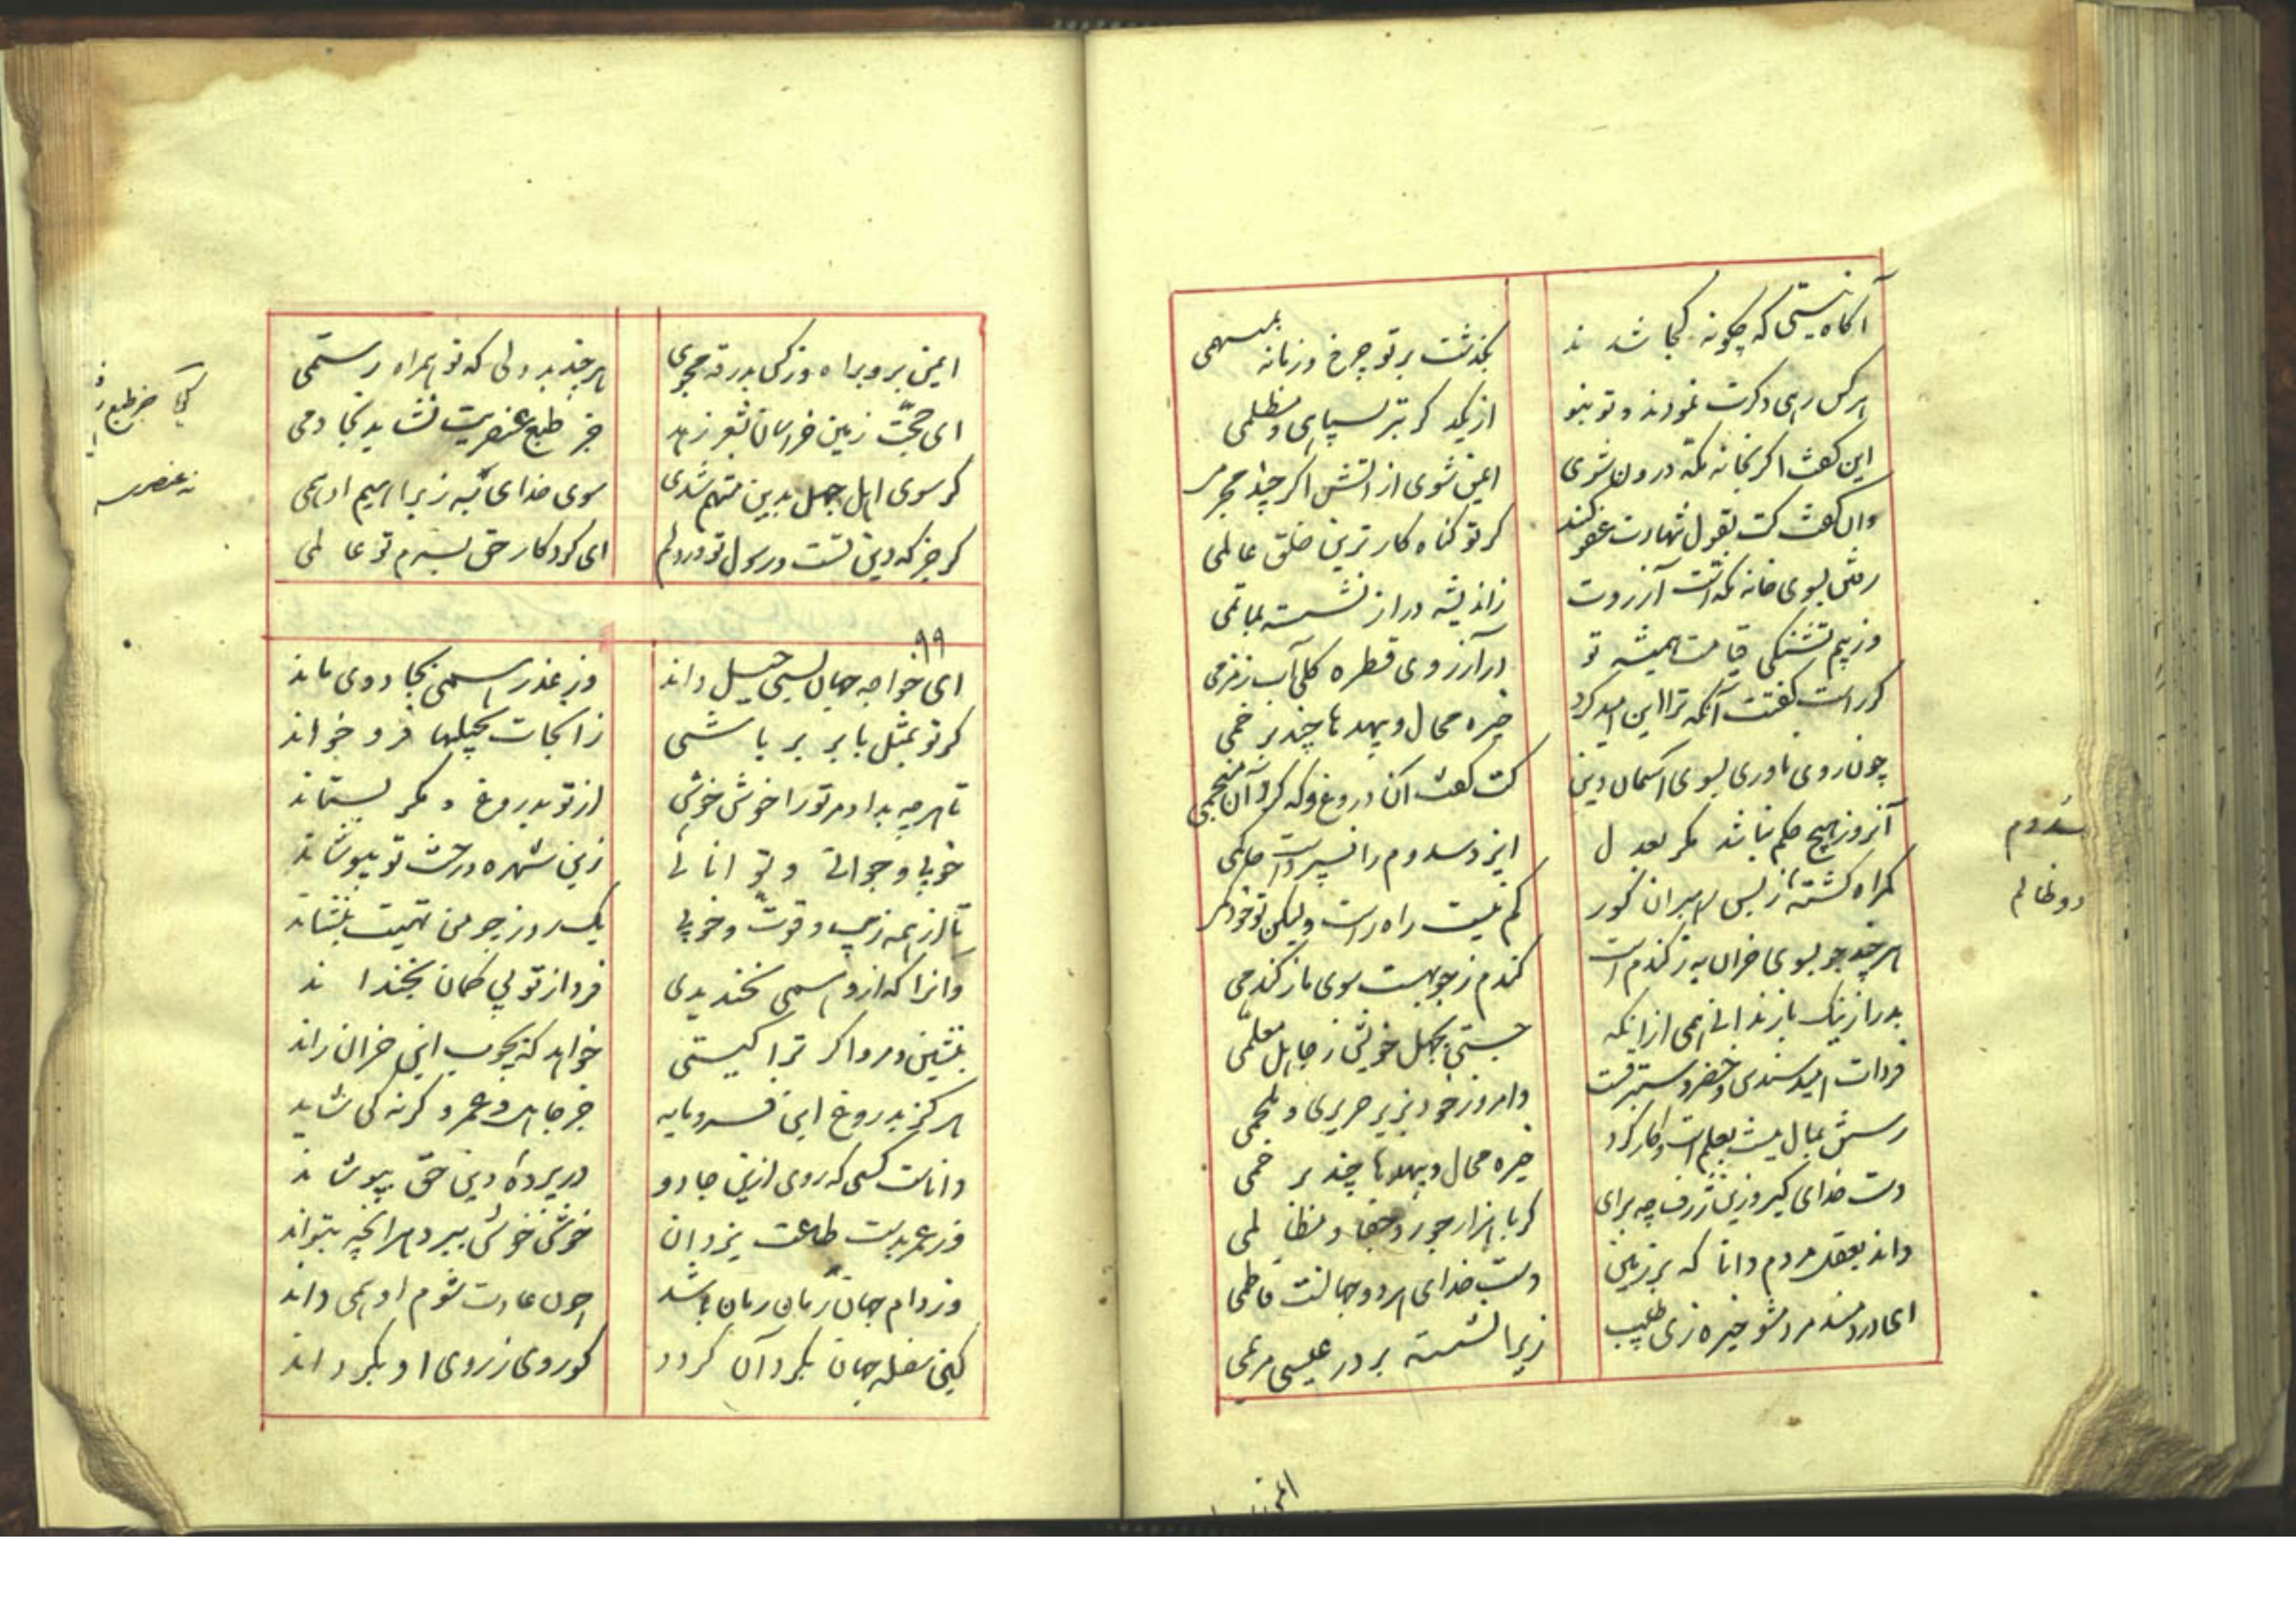 آگاه نیستی که چگونه کجا شدند
بگذشت بر تو چرخ و زمانه بمبهمی
هرکس رهی دگرت نمودند و تو بنو
از یکدگر بتر بسپاهی و مظلمی
این گفت اگر بخانه مکه درون شوی
ایمن شوی از آتش اگر چند مجرمی
وان گفت کت بقول شهادت عفو کند
گر تو گناه کارترین خلق عالمی
رفتن بسوی خانه مکه است آرزوت
زاندیشه دراز نشسته بماتمی
وز بیم تشنگی قیامت همیشه تو
در آرزوی قطره کلی آب زمزمی
گر راست گفتت آنکه ترا این امید کرد
خیره محال و بیهده تا چند بر خمی
چون روی ناوری بسوی آسمان دین
کت گفت آن دروغ و که کرد آن منجمی
آنروز هیچ حکم نباشد مگر بعدل
ایزد سدوم را نسپردست حاکمی
گمراه گشته ز پس رهبران کور
گم نیست راه راست ولیکن تو خود گمی
هرچند جو بسوی خران به ز گندم است
گندم ز جو بهست سوی ما ز گندمی
بد را ز نیک باز ندانی همی ازانکه
جستی بجهل خویش ز جاهل معلمی
فردات امید سندس و خضر و ستبرقست
وامروز خود بزیر حریری و ملحمی
رستن بمال نیست بعلم است و کارکرد
خیره محال و بیهده تا چند بر خمی
دست خدای گیر و زین ژرف چه برای
گر با هزار جور و جفا و مظالمی
داند بعقل مردم دانا که بر زمین
دست خدای هر دو جهانست فاطمی
ای دردمند مرد مشو خیره زی طبیب
زیرا نشسته بر در عیسی مریمی
سدوم
دو ظالم
ایمن برو براه وز کس بدرقه مجوی
هرچند بددلی که تو همراه رستمی
ای حجت زمین خراسان بشعر زهد
جز طبع عنصریت نشاید بخادمی
گر سوی اهل جهل بدین متهم شدی
سوی خدای به ز براهیم ادهمی
گر جز که دین تست و رسول تو در دلم
ای کردکار حق بسرم تو عالمی
جز طبع
نه عنصری
۹۹
ای خواجه جهان بسی حیل داند
وز غدر همی بجادوی ماند
گر تو بمثل بابر بر باشی
زانجات بحیلها فرو خواند
تا هرچه بداد مر تو را خوش خوش
از تو بدروغ و مکر بستاند
خوبی و جوانی و توانائی
زین شهره درخت تو بپوشاند
تا از همه زیب و قوت و خوبی
یک روز چو من تهیت بنشاند
وانرا که ازو همی بخندیدی
فردا ز تو بی گمان بخنداند
بنشین و مرو اگر ترا گیتی
خواهد که بچوب این خران راند
هرگز بدروغ این فرومایه
جز جاهل و غمر و گرنه کی شاید
داناست کسی که روی ازین جادو
در پرده دین حق بپوشاند
وز عمر بدست طاعت یزدان
خوش خوش ببرد هرانچه بتواند
وز دام جهان رمان رمان باشد
چون عادت شوم او همی داند
کین سفله جهان بگرد آن گردد
کو روی ز روی او بگرداند